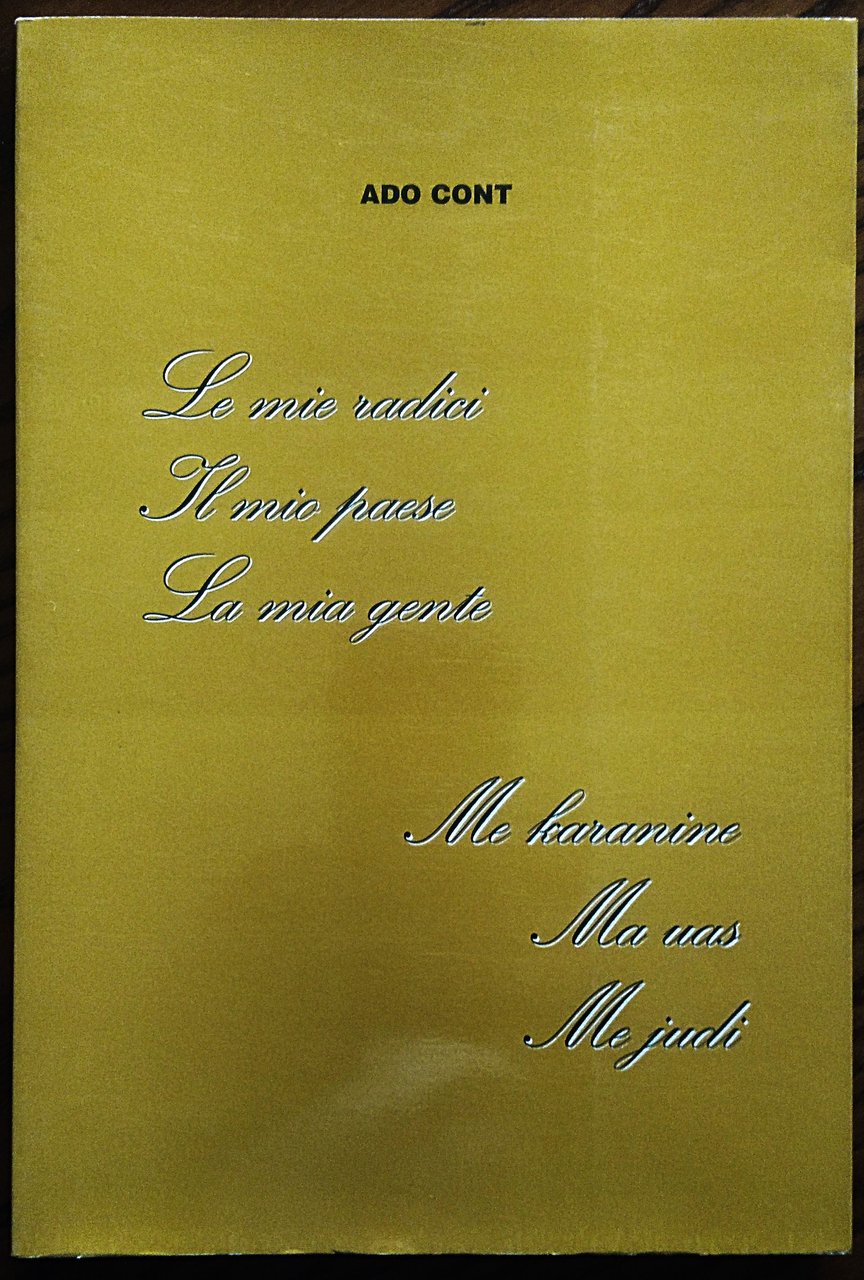 ADO CONT
Le mie radici
Il mio paese
La mia gente
Me karanine
Ma uas
Me judi